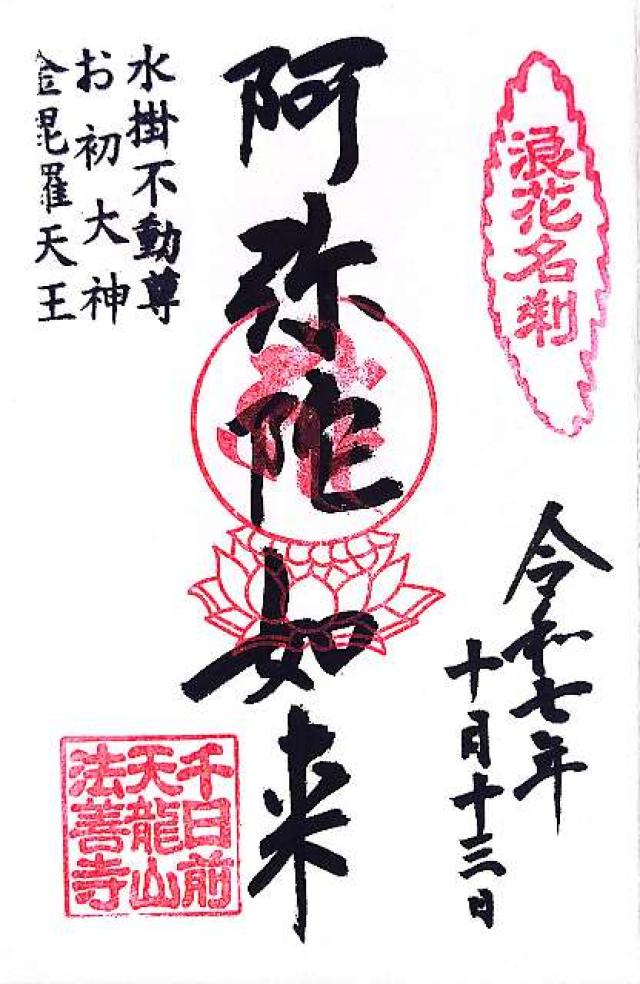 浪花名刹
令和七年
十月十三日
阿弥陀如来
水掛不動尊
お初大神
金毘羅天王
千日前
天龍山
法善寺